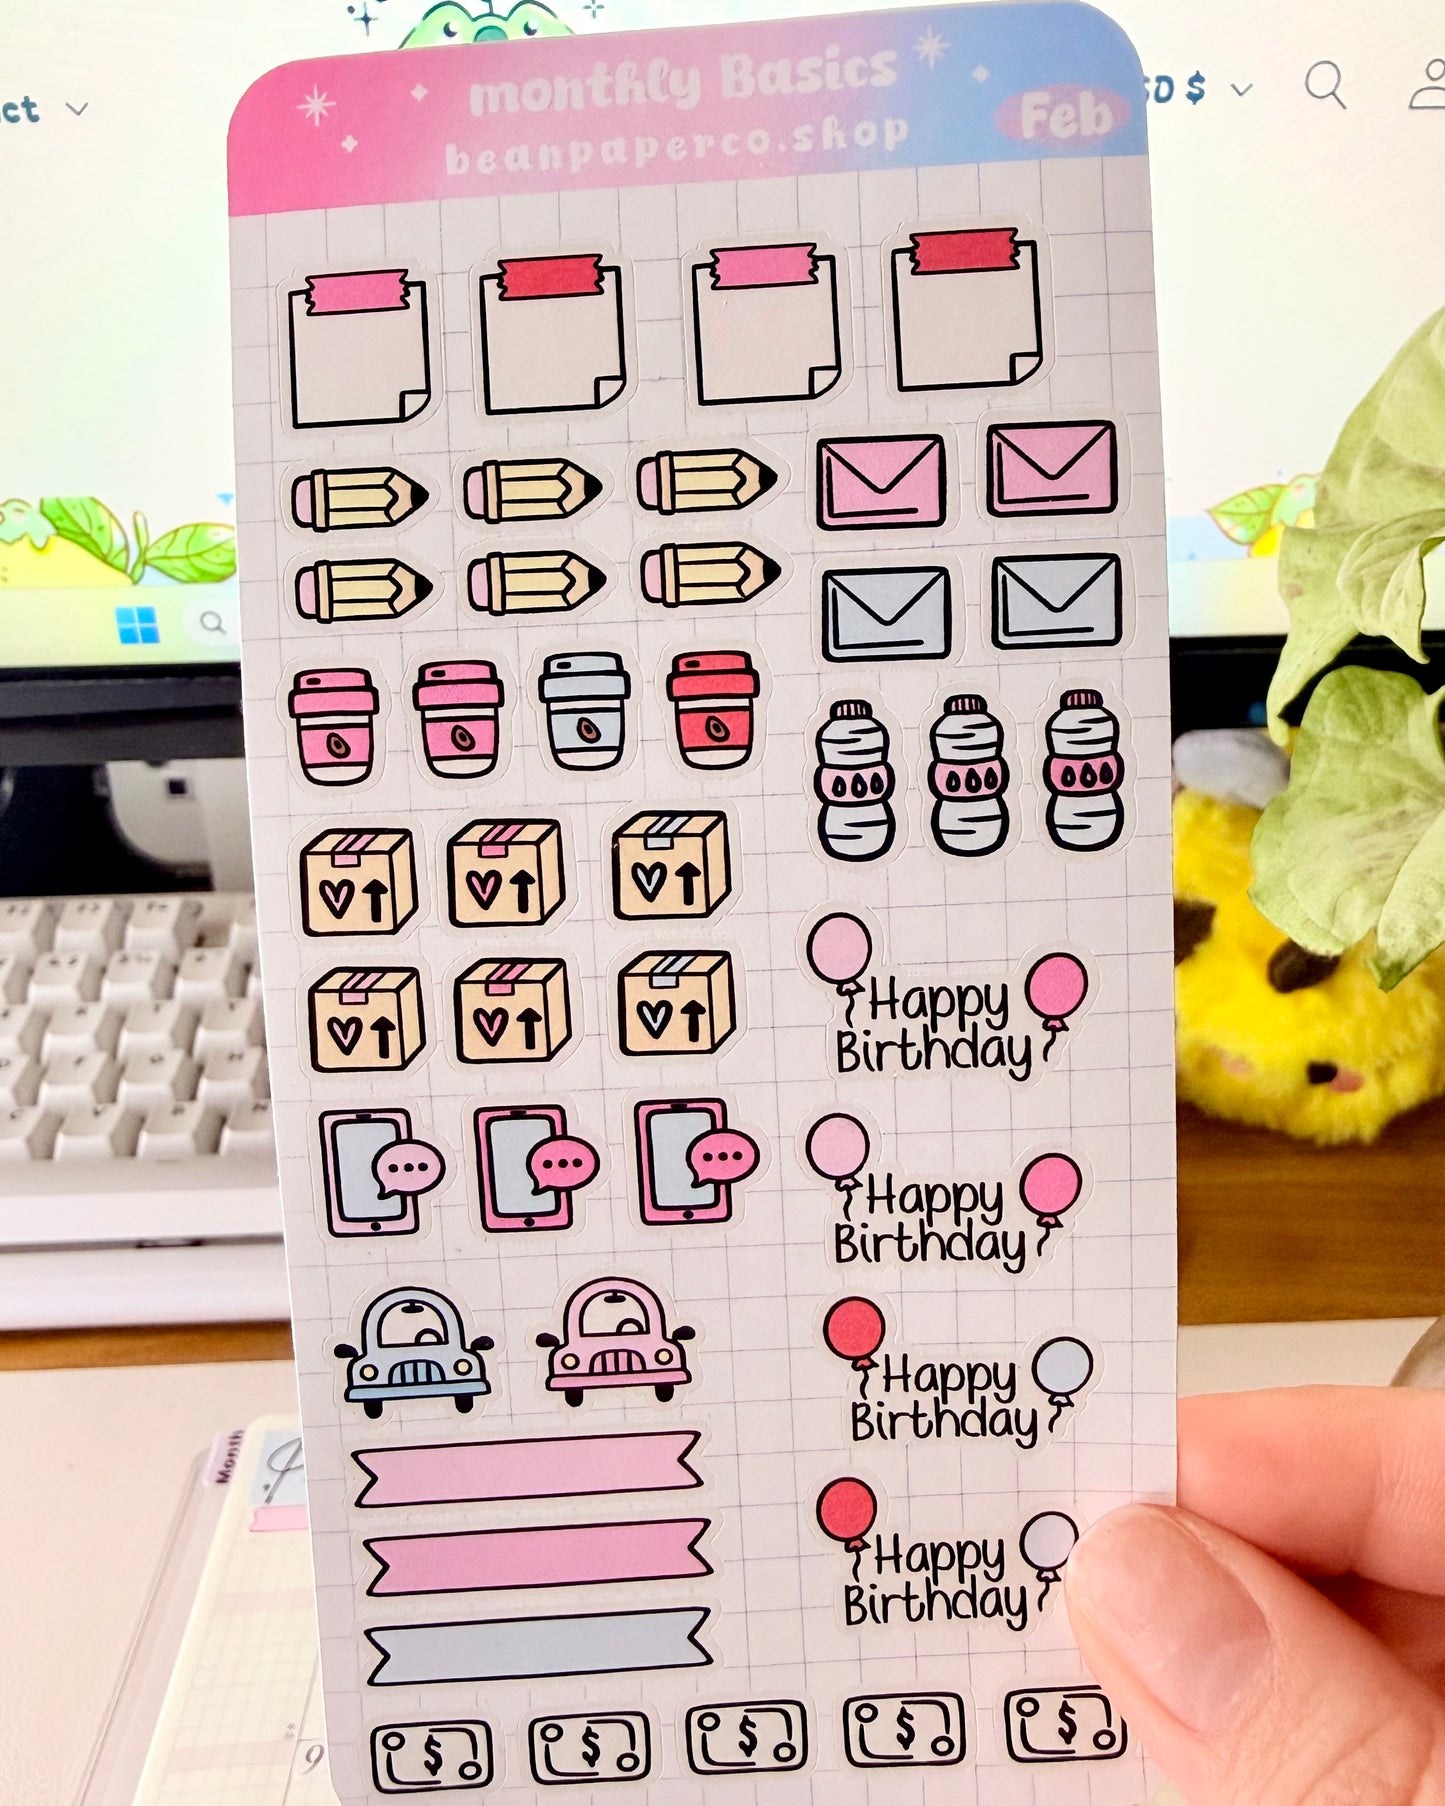 monthly Basics
beanpaperco.shop
Feb
ct
D $
Happy
Birthday
Happy
Birthday
Happy
Birthday
Happy
Birthday
Month
$ $ $ $ $
9